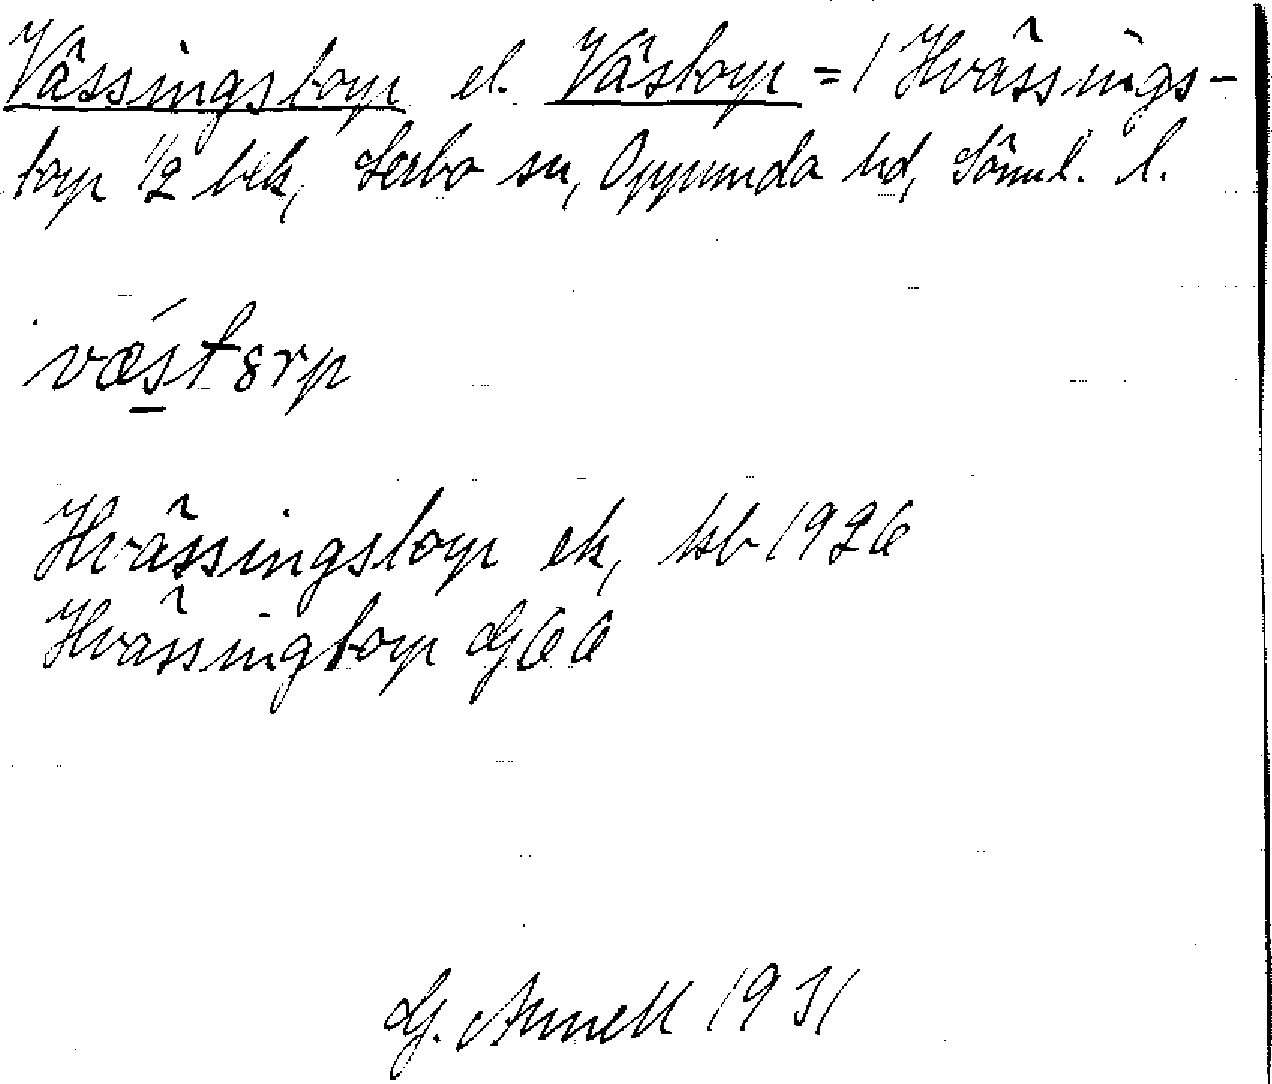 Vässingstorp el. Västorp = 1 Hvässings-
torp 1/2 bek, Lerbo sn, Oppunda hd, Söml. l.
væ̀stərp
Hvässingstorp ek, hsb 1926
Hvässingtorp G66
G. Annell 1931